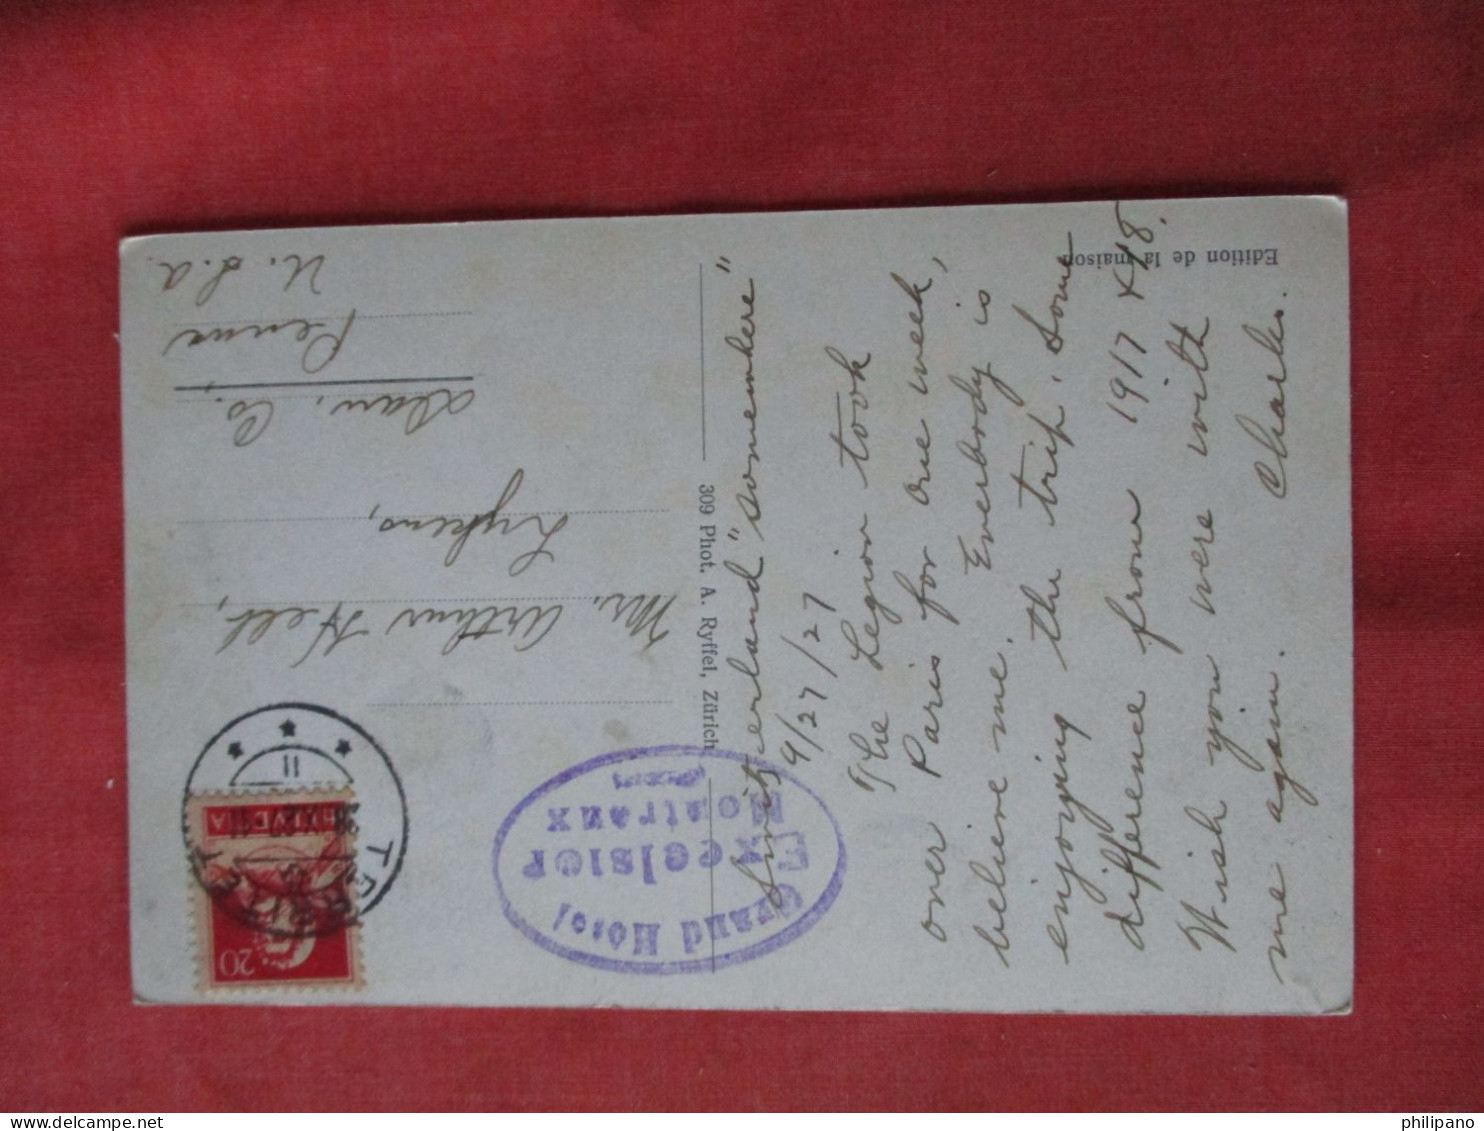 Switzerland "somewhere"
9/27/27
The Legion took
over Paris for one week,
believe me. Everbody is
enjoying the trip. Some
difference from 1917 & 18.
Wish you were with
me again. Charles.
Edition de la maison
309 Phot. A. Ryffel, Zürich
Grand Hôtel
Excelsior
Montreux
HELVETIA
20
TERRITET
Mr. Arthur Helt,
Lykens,
Dau. Co.,
Penna
U. S. A.
philipano